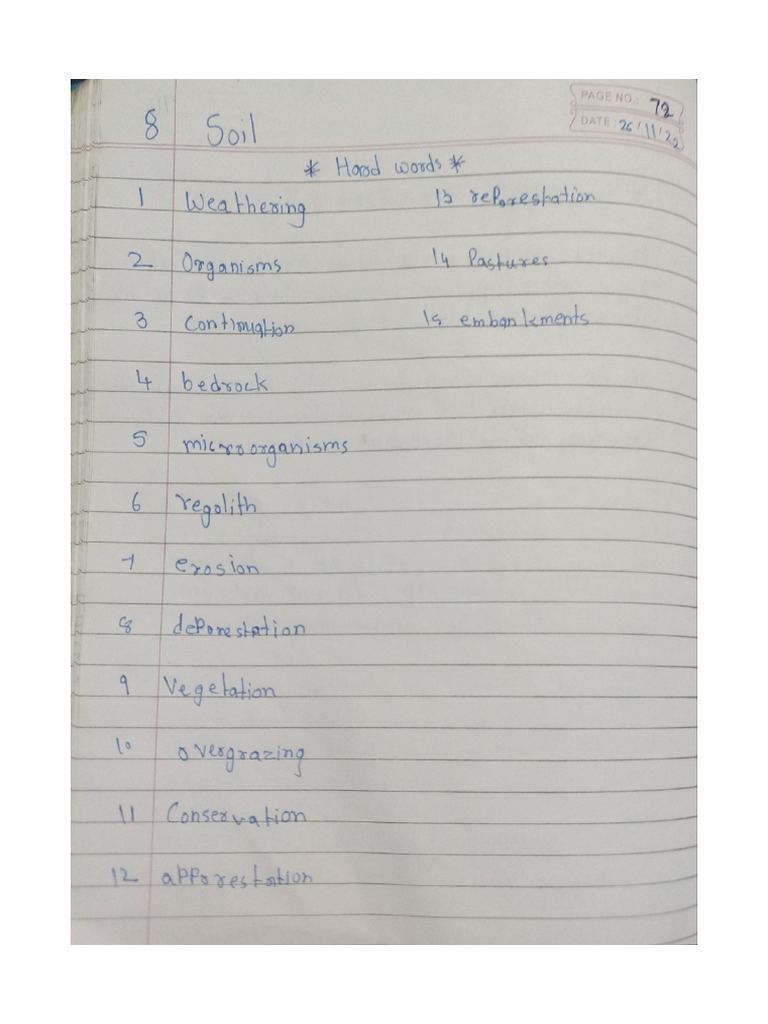 PAGE NO.: 72
DATE: 26/11/22
8 Soil
* Hard words *
1 Weathering
2 Organisms
3 Continuation
4 bedrock
5 microorganisms
6 regolith
7 erosion
8 deporestation
9 Vegetation
10 overgrazing
11 Conservation
12 apporestation
13 reporestation
14 Pastures
15 embankments